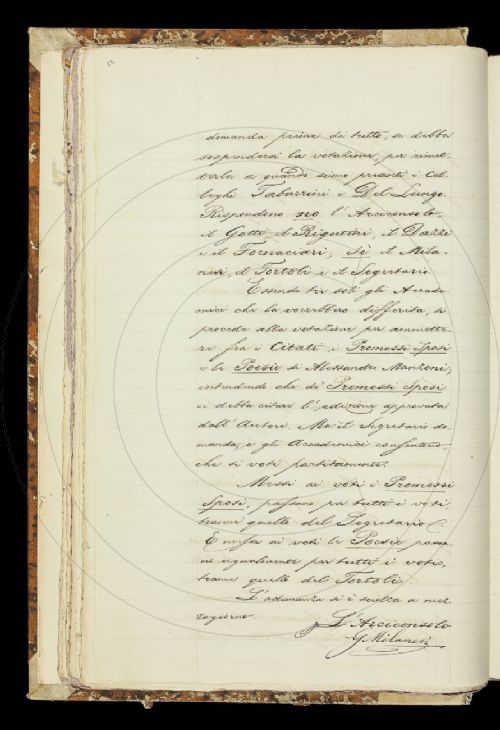 domanda prima di tutto, se debba
sospendersi la votazione, per rimet-
terla a quando sieno presenti i Col-
leghi Tabarrini e Del Lungo.
Rispondono no l'Arciconsolo,
il Gotti, il Rigutini, il Dazzi
e il Fornaciari; sì il Mila-
nesi, il Tortoli e il Segretario.
Essendo tre soli gli Accade-
mici che la vorrebbero differita, si
procede alla votazione per ammette-
re fra i Citati i Promessi Sposi
e le Poesie di Alessandro Manzoni;
intendendo che de' Promessi Sposi
si debba citare l'edizione approvata
dall'Autore. Ma il Segretario do-
manda, e gli Accademici consentono,
che si voti partitamente.
Messi ai voti i Promessi
Sposi, passano per tutti i voti
tranne quello del Segretario.
E messe ai voti le Poesie passa-
no egualmente per tutti i voti,
tranne quello del Tortoli.
L'adunanza si è sciolta a mez-
zogiorno.
L'Arciconsolo
G. Milanesi